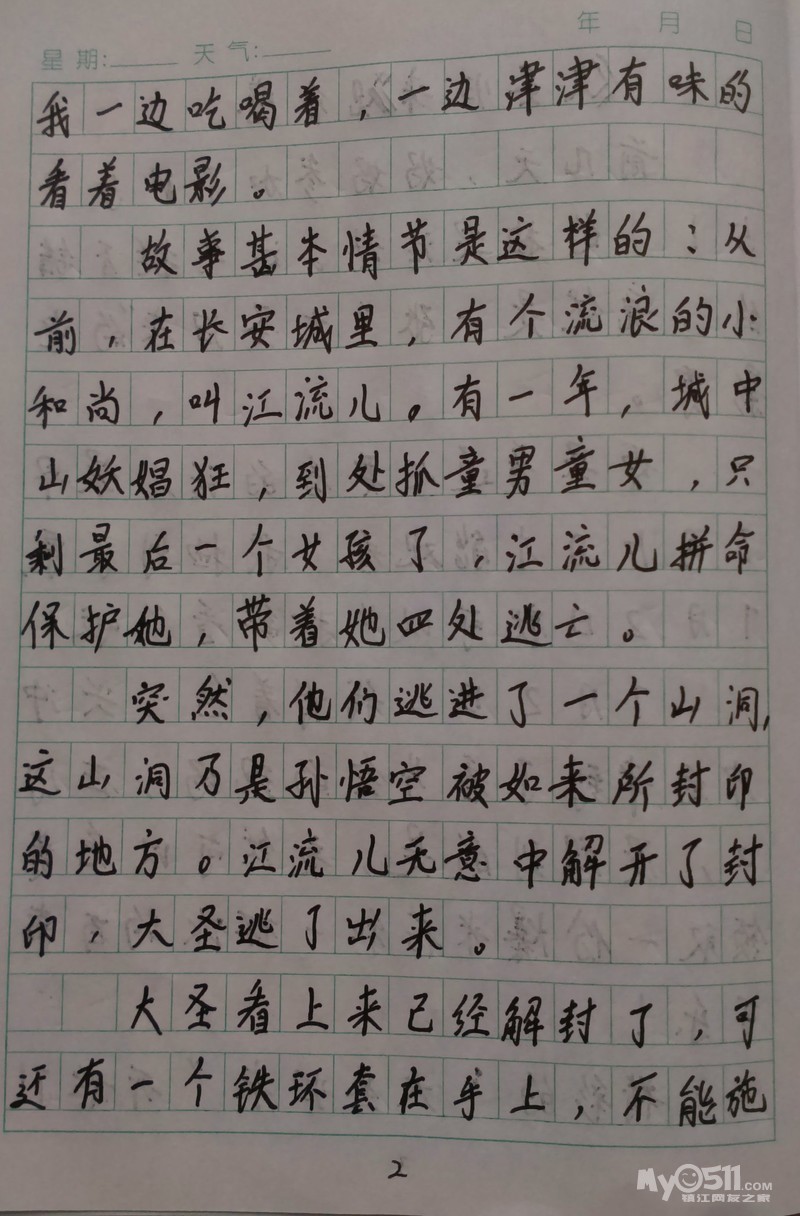 年 月 日
星期: 天气:
我一边吃喝着，一边津津有味的
看着电影。
故事基本情节是这样的：从
前，在长安城里，有个流浪的小
和尚，叫江流儿。有一年，城中
山妖娼狂，到处抓童男童女，只
剩最后一个女孩了，江流儿拼命
保护她，带着她四处逃亡。
突然，他们逃进了一个山洞，
这山洞乃是孙悟空被如来所封印
的地方。江流儿无意中解开了封
印，大圣逃了出来。
大圣看上来已经解封了，可
还有一个铁环套在手上，不能施
2
My0511.com
镇江网友之家